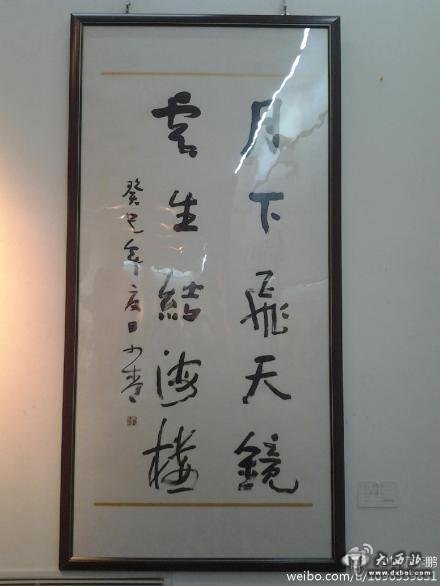 月下飛天鏡
雲生結海樓
癸巳年夏日
大西北
www.dxbei.com